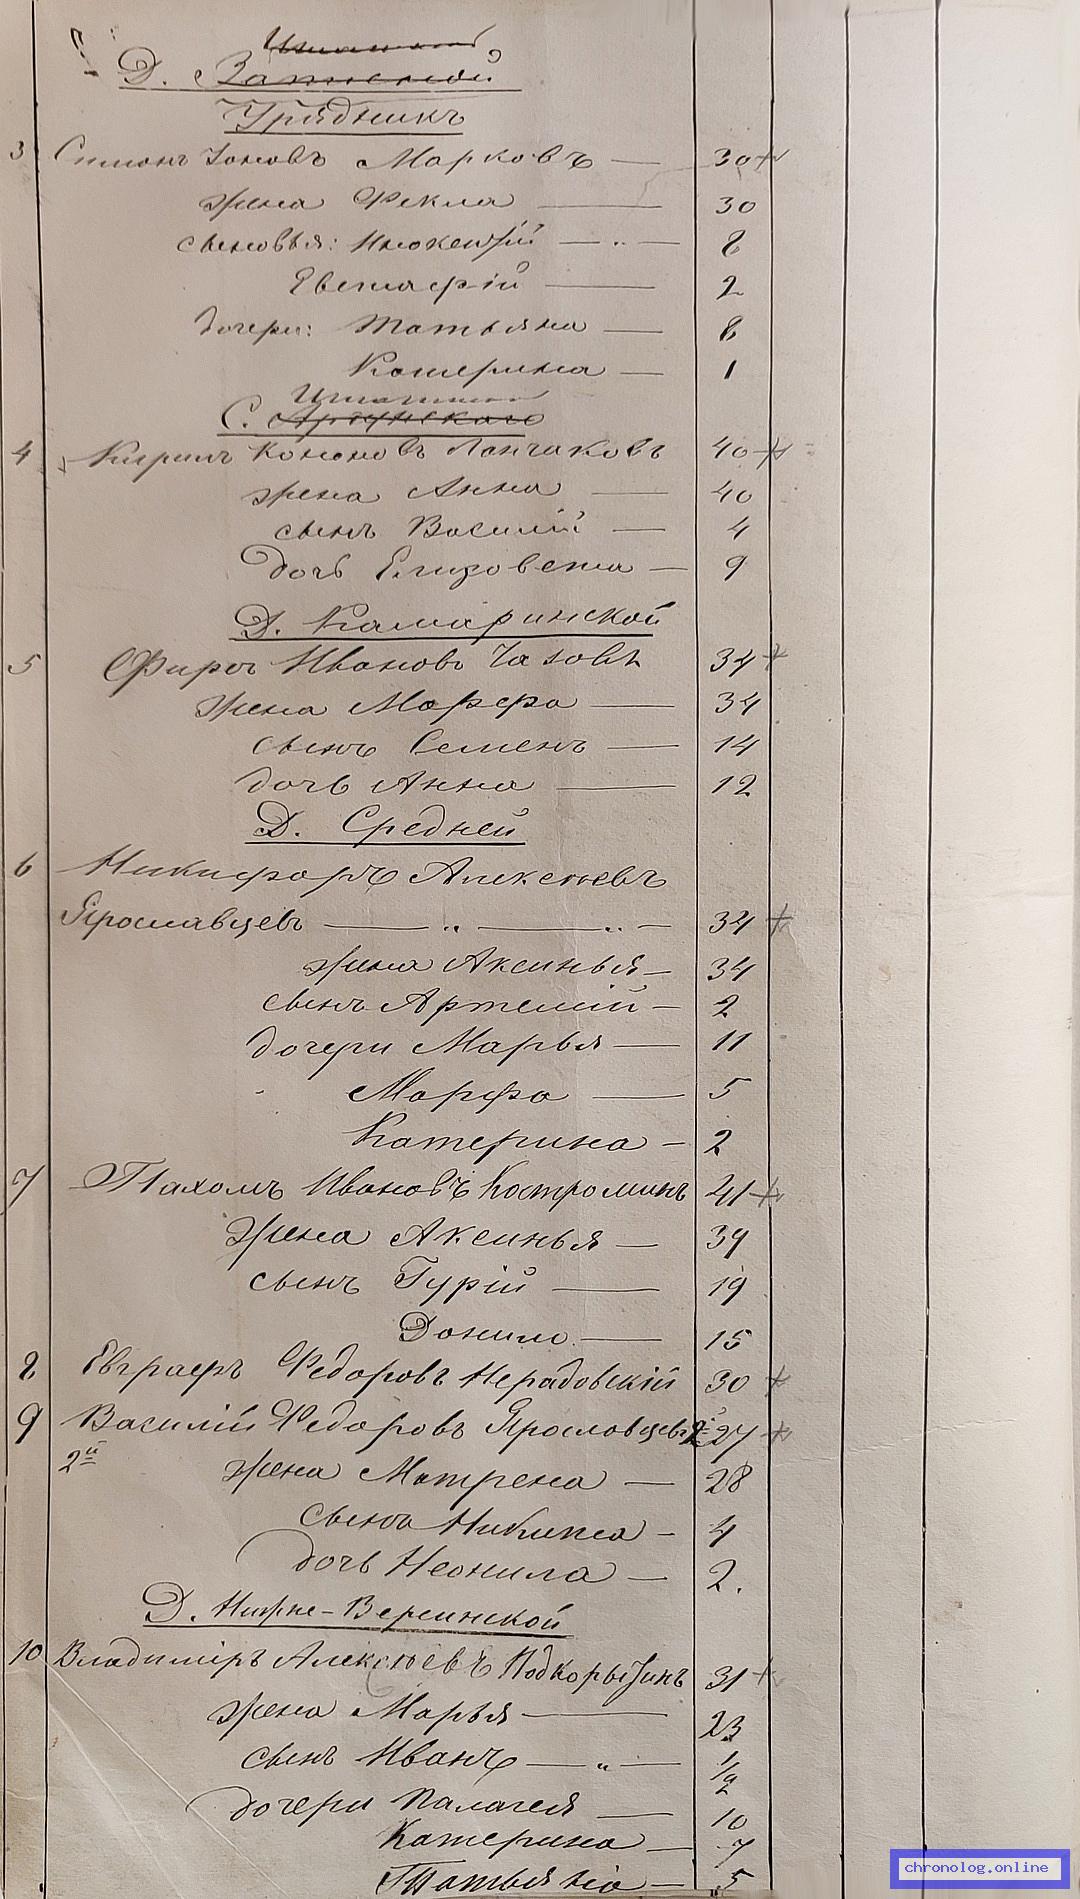 Д. Затенской
Урядникъ
3 Симонъ Іоновъ Марковъ — 30
жена Фекла — 30
сыновья: Инокентій — „ — 8
Евстафій — 2
дочери: Татьяна — 8
Катерина — 1
С. Аргунскаго
4 Кирилъ Кононовъ Лончаковъ 40
жена Анна — 40
сынъ Василій — 4
дочь Елизовета — 9
Д. Камаринской
5 Фирсъ Ивановъ Чазовъ 34
жена Марфа — 34
сынъ Семенъ — 14
дочь Анна — 12
Д. Средней
6 Никифоръ Алексѣевъ
Ярославцевъ — „ — „ — 34
жена Аксинья — 34
сынъ Артемій — 2
дочери Марья — 11
Марфа — 5
Катерина — 2
7 Пахомъ Ивановъ Костроминъ 41
жена Аксинья — 39
сынъ Гурій — 19
Данило — 15
8 Евграфъ Федоровъ Нерадовскій 30
9 Василій Федоровъ Ярославцевъ 2й 27
2й жена Матрена — 28
сынъ Никита — 4
дочь Неонила — 2.
Д. Нижне-Вереинской
10 Владиміръ Алексѣевъ Подкорытинъ 31
жена Марья — 23
сынъ Иванъ — „ — 1/2
дочери Палагея — 10
Катерина — 7
Татьяна — 5
chronolog.online